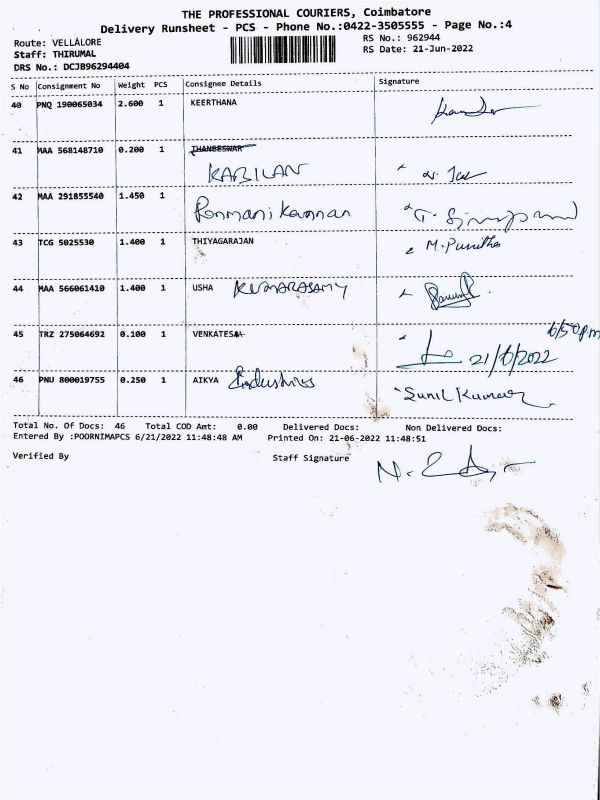 THE PROFESSIONAL COURIERS, Coimbatore
Delivery Runsheet - PCS - Phone No.:0422-3505555 - Page No.:4
Route: VELLALORE
RS No.: 962944
Staff: THIRUMAL
RS Date: 21-Jun-2022
DRS No.: DCJB96294404
S No Consignment No Weight PCS Consignee Details Signature
40 PNQ 190065034 2.600 1 KEERTHANA
41 MAA 568148710 0.200 1 THANEESWAR
KABILAN
42 MAA 291855540 1.450 1 Ponmani Kannan
43 TCG 5025530 1.400 1 THIYAGARAJAN M. Punitha
44 MAA 566061410 1.400 1 USHA KUMARASAMY
6/50pm
45 TRZ 275064692 0.100 1 VENKATESAA
21/6/2022
46 PNU 800019755 0.250 1 AIKYA Industries Sunil Kumar
Total No. Of Docs: 46 Total COD Amt: 0.00 Delivered Docs: Non Delivered Docs:
Entered By :POORNIMAPCS 6/21/2022 11:48:48 AM Printed On: 21-06-2022 11:48:51
Verified By Staff Signature